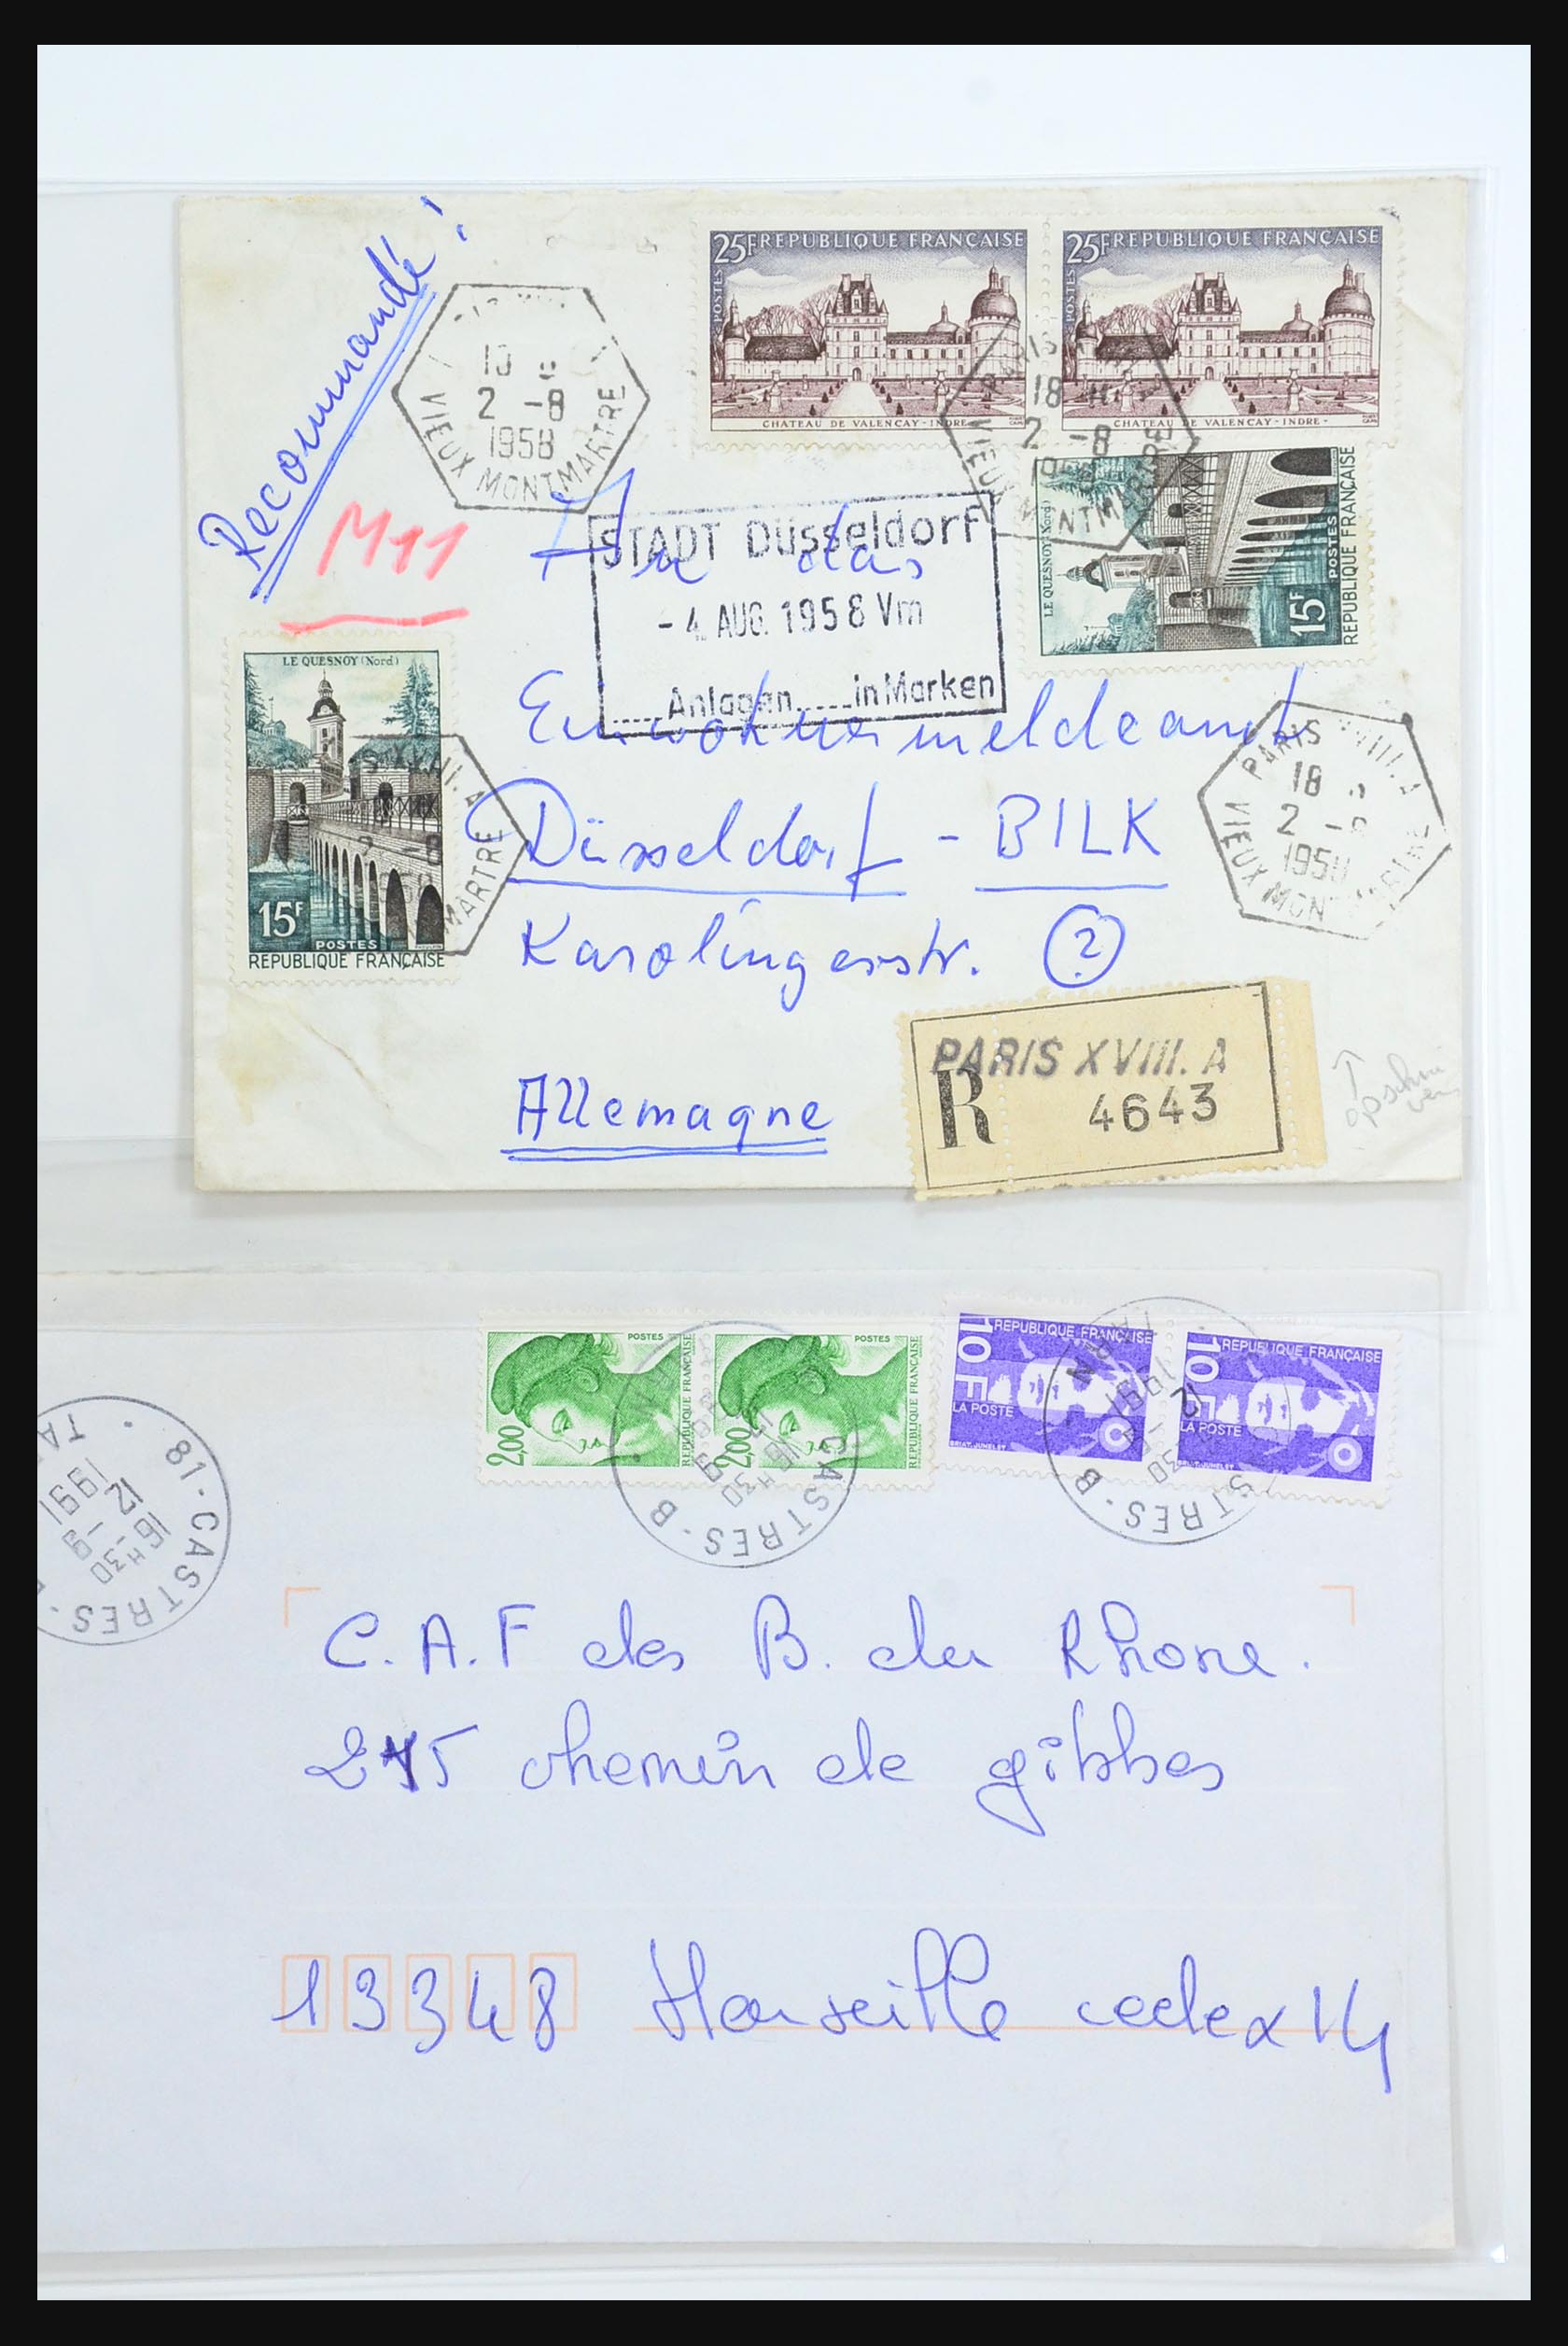 Recommandé !
M11
18 H
2 -8
1958
VIEUX MONTMARTRE
25F REPUBLIQUE FRANÇAISE
POSTES
CHATEAU DE VALENCAY - INDRE -
25F REPUBLIQUE FRANÇAISE
POSTES
CHATEAU DE VALENCAY - INDRE -
PARIS
18 H
2 -8
1958
VIEUX MONTMARTRE
LE QUESNOY (Nord)
15F
POSTES
REPUBLIQUE FRANÇAISE
STADT Düsseldorf
- 4. AUG. 1958 Vm
..... Anlagen ..... in Marken
An das
Einwohnermeldeamt
Düsseldorf - BILK
Karolingerstr. (?)
Allemagne
LE QUESNOY (Nord)
15F
POSTES
REPUBLIQUE FRANÇAISE
2 -8
MARTRE
PARIS XVIII. A
18
2 -8
1958
VIEUX MONTMARTRE
PARIS XVIII. A
R
4643
POSTES
2,00
REPUBLIQUE FRANÇAISE
POSTES
2,00
REPUBLIQUE FRANÇAISE
10F
REPUBLIQUE FRANÇAISE
LA POSTE
BRIAT-JUMELET
10F
REPUBLIQUE FRANÇAISE
LA POSTE
BRIAT-JUMELET
81 - CASTRES -
TA
16H30
12 -9
1991
CASTRES-B
16H30
CASTRES-B
TARN
12 -9
1991
C.A.F des B. du Rhone.
215 chemin de gibbes
13348 Marseille cedex 14